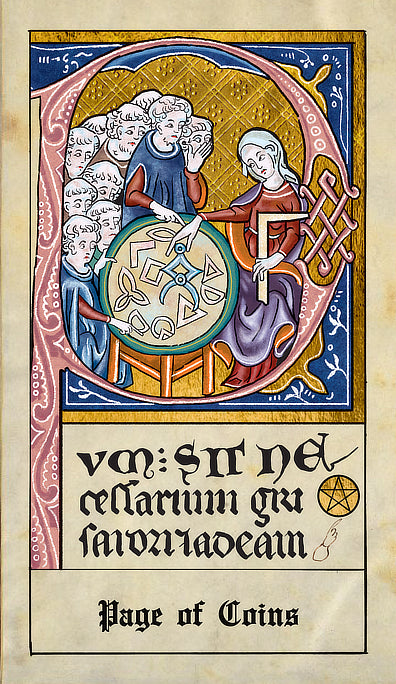 VM: SIT NE
cessarium gri
sarori ⁊ ad eam
Page of Coins